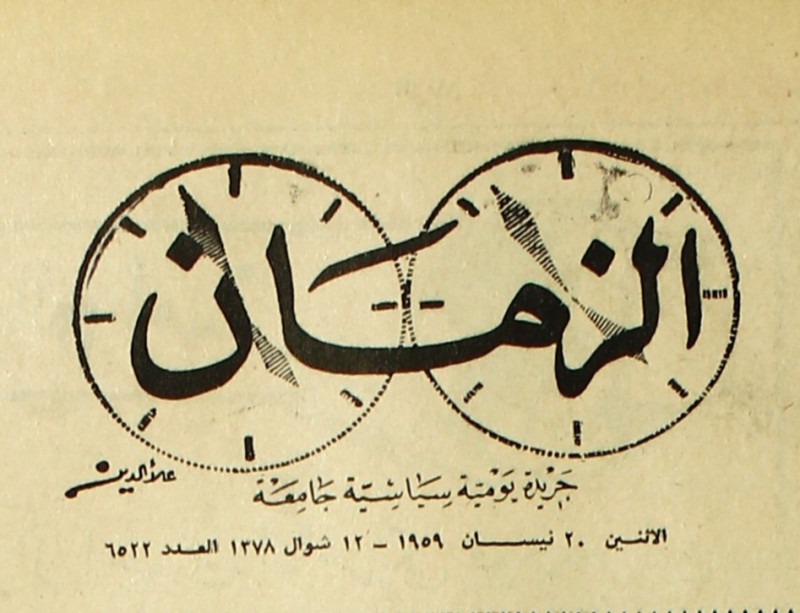 الزمان
علاءالدين
جريدة يومية سياسية جامعة
الاثنين ٢٠ نيسان ١٩٥٩ - ١٢ شوال ١٣٧٨ العدد ٦٥٢٢